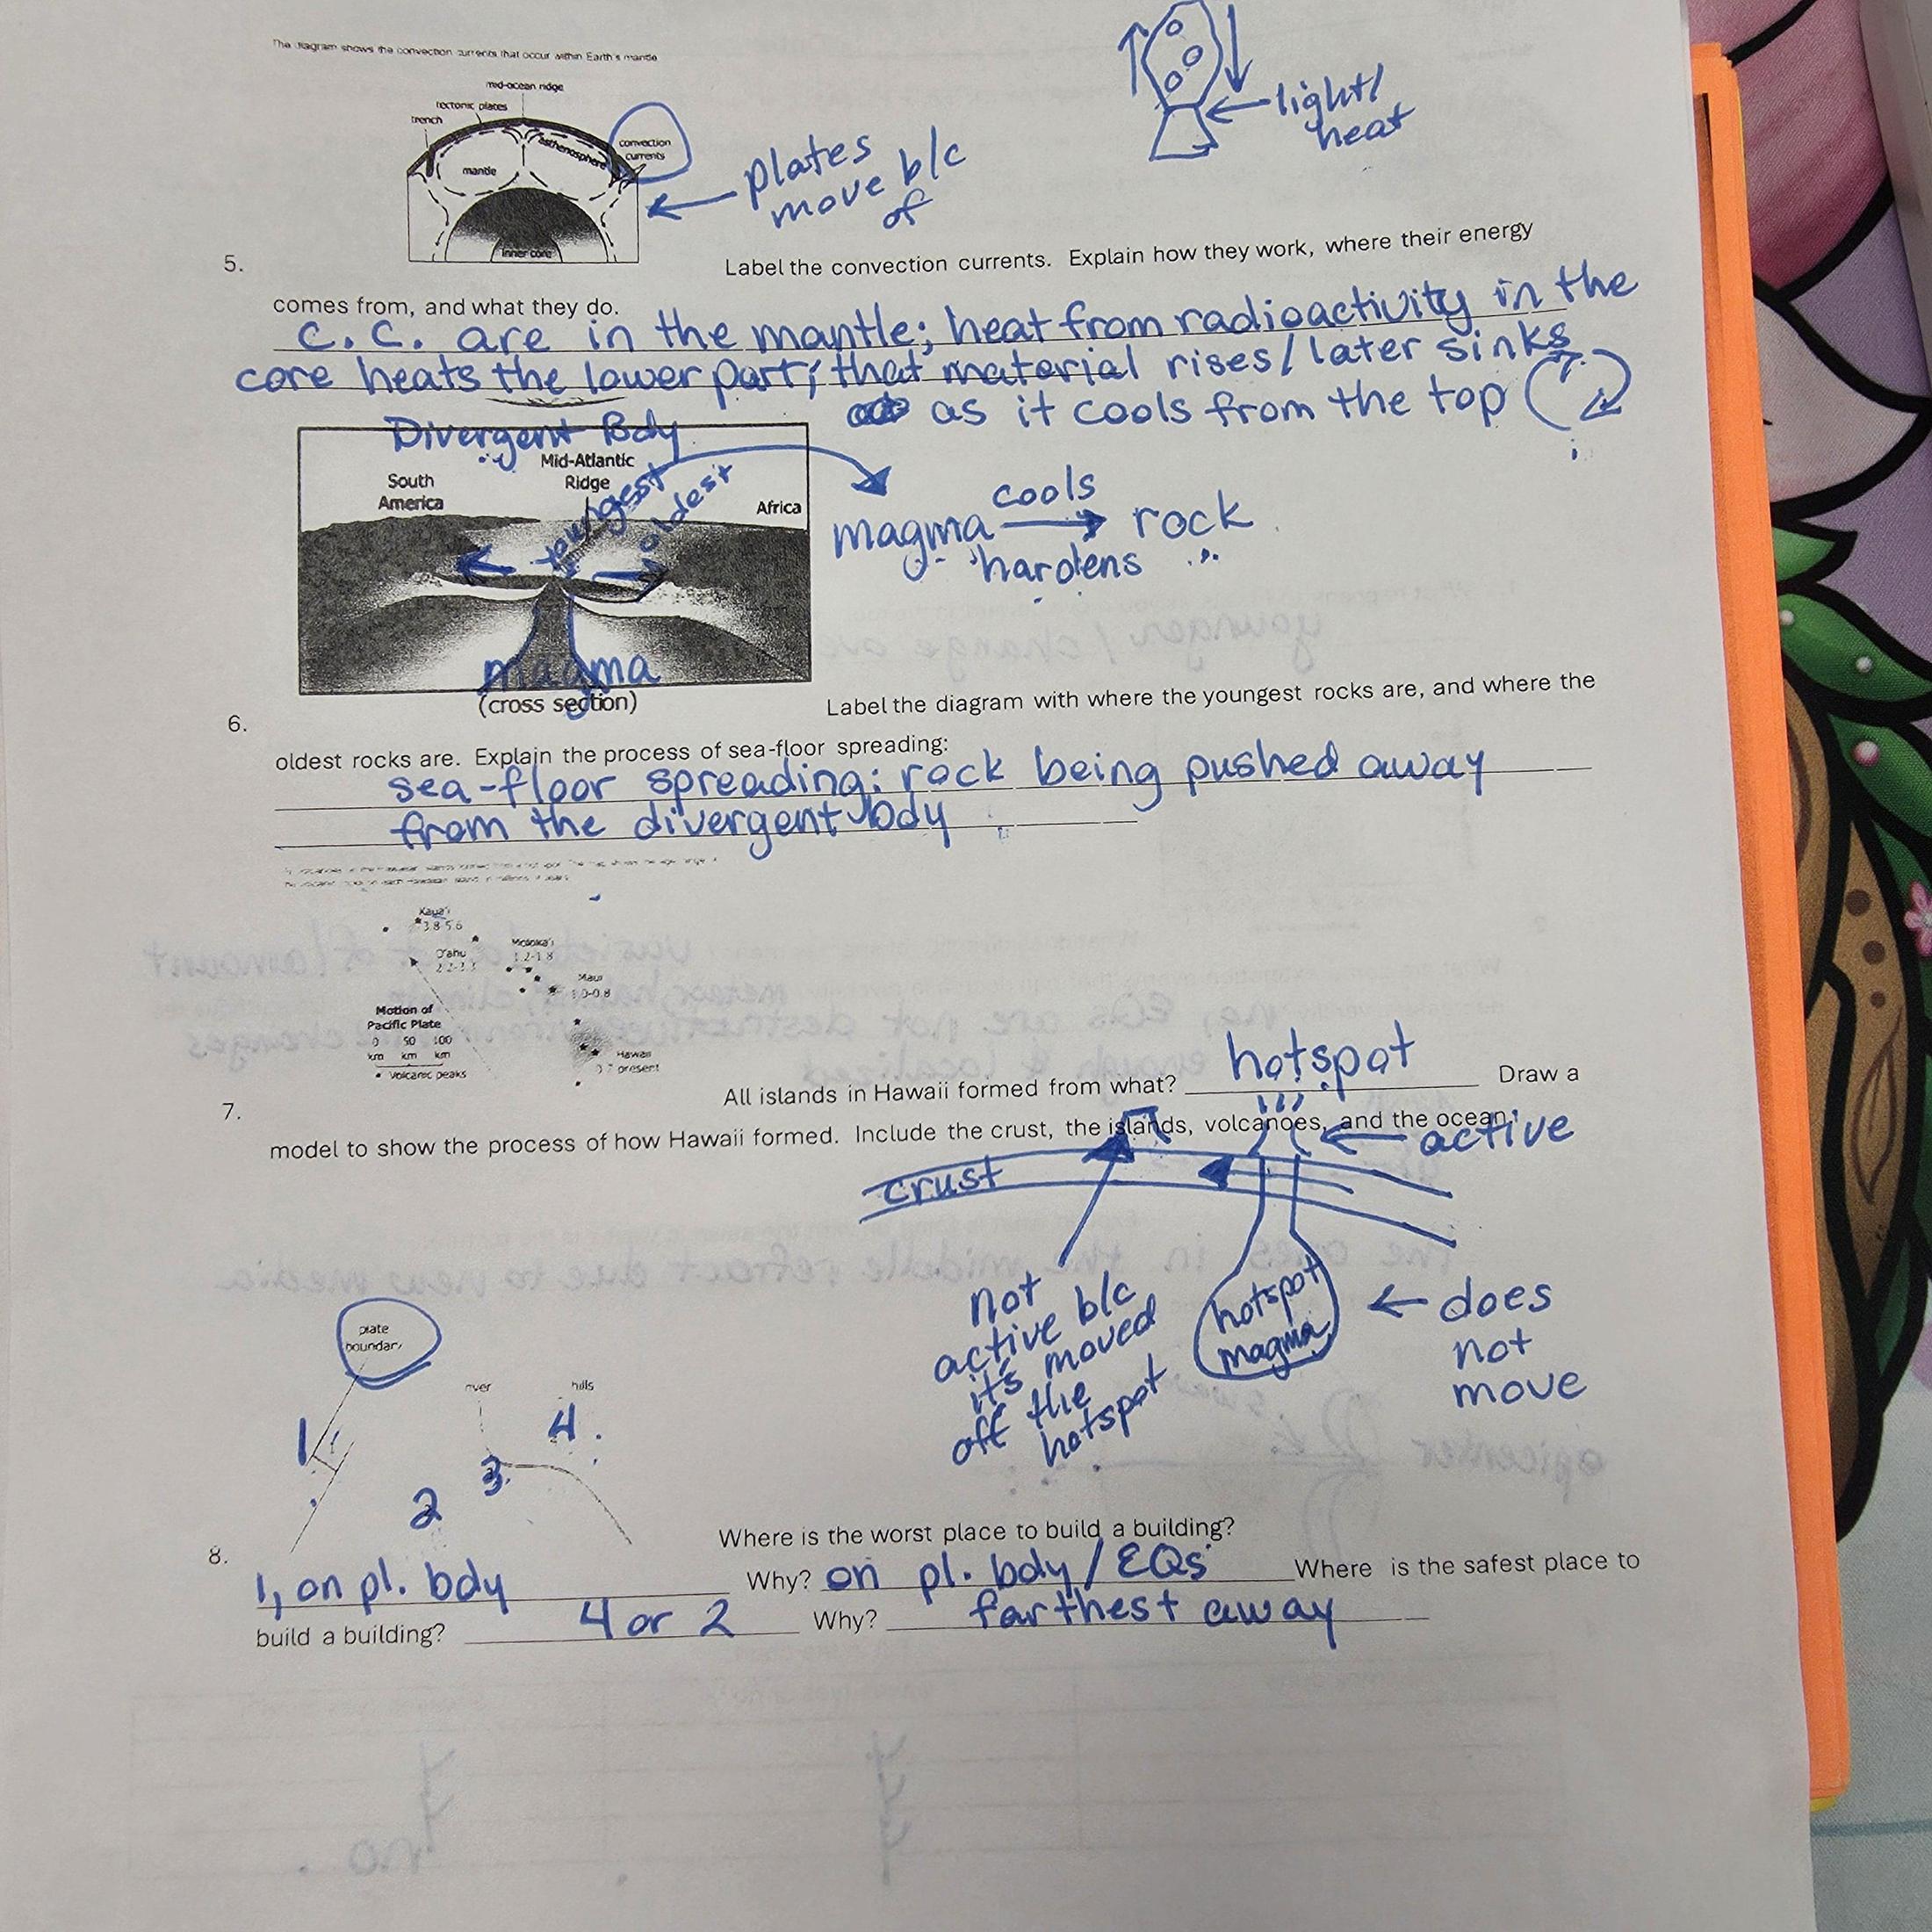 The diagram shows the convection currents that occur within Earth's mantle
mid-ocean ridge
tectonic plates
trench
asthenosphere
convection
currents
mantle
inner core
plates
move b/c
of
light/
heat
5.
Label the convection currents. Explain how they work, where their energy
comes from, and what they do.
C.C. are in the mantle; heat from radioactivity in the
core heats the lower part; that material rises/later sinks
as it cools from the top
Divergent Bdy
Mid-Atlantic
Ridge
South
America
Africa
youngest
oldest
magma
(cross section)
cools
magma → rock
hardens
6.
Label the diagram with where the youngest rocks are, and where the
oldest rocks are. Explain the process of sea-floor spreading:
sea-floor spreading: rock being pushed away
from the divergent body
Kaua'i
3.8-5.6
O'ahu
2.2-3.3
Moloka'i
1.2-1.8
Maui
Motion of
Pacific Plate
0 50 100
km km km
Volcanic peaks
Hawaii
present
7.
All islands in Hawaii formed from what? hotspot Draw a
model to show the process of how Hawaii formed. Include the crust, the islands, volcanoes, and the ocean.
active
crust
not
active b/c
it's moved
off the
hotspot
hotspot
magma
does
not
move
plate
boundary
river
hills
1
2
3
4
8.
Where is the worst place to build a building?
1, on pl. bdy Why? on pl. bdy/EQs Where is the safest place to
build a building? 4 or 2 Why? farthest away